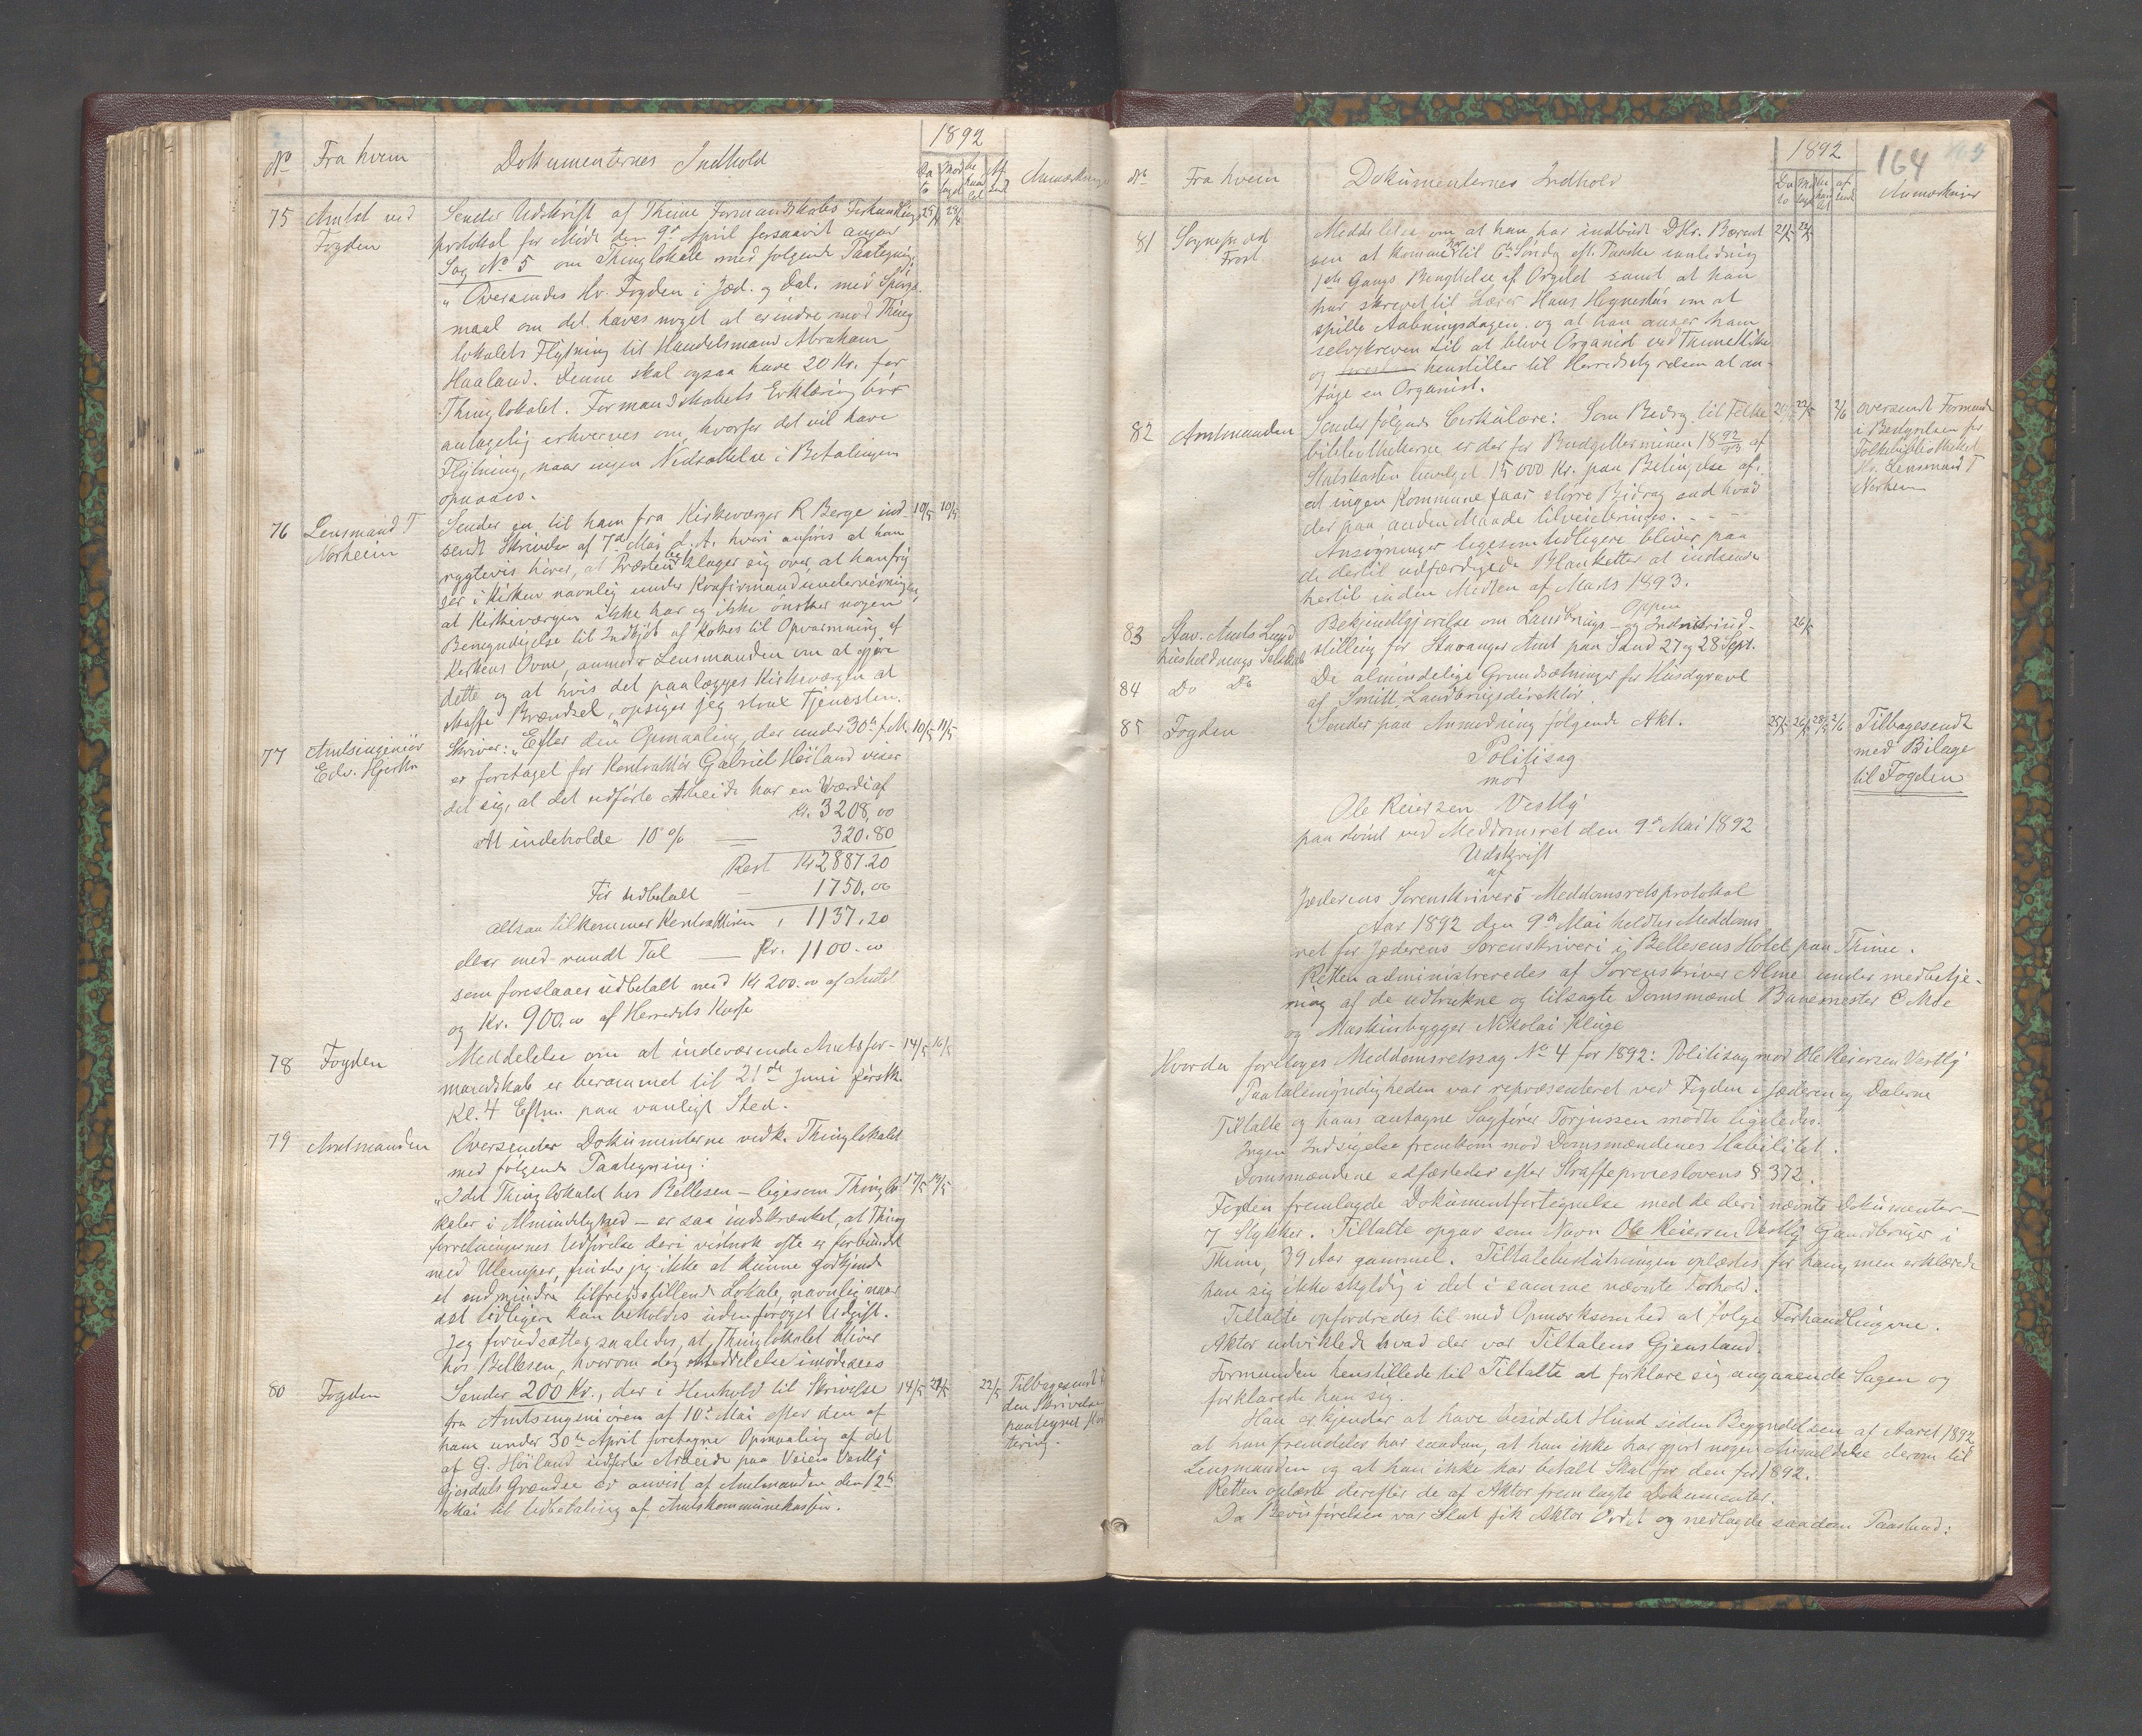 1892
No Fra hvem Dokumenternes Indhold Da to Mod taget be hand let Af sendt Anmærkninger
75 Amtet ved Fogden Sender Udskrift af Thime Formandskabs Forhandlings 25/4 29/4
protokol for Møde den 9de April forsaavidt angaar
Sag No 5 om Thinglokale med følgende Paategning:
"Oversendes Hr. Fogden i Jæd. og Dal. med Spørgs-
maal om det haves noget at erindre mod Thing
lokalets Flytning til Handelsmand Abraham
Haaland. Denne skal ogsaa have 20 Kr. for
Thinglokalet. Formandskabets Erklæring bør
antagelig erhverves om, hvorfor det vil have
Flytning, naar ingen Nedsættelse i Betalingen
opnaaes.
76 Lensmand T Norheim Sender en til ham fra Kirkeværger R Berge ind 10/5 10/5
sendt Skrivelse af 7de Mai d.A. hvori anføres at han
rygtevis hører, at Præsten beklager sig over, at han fry
ser i Kirken navnlig under Konfirmandundervisningen,
at Kirkeværgen ikke har og ikke ønsker nogen
Bemyndigelse til Indkjøb af Kokes til Opvarmning af
Kirkens Ovne, anmoder Lensmanden om at gjøre
dette og at hvis det paalægges Kirkeværgen at
skaffe Brændsel, "opsiger jeg strax Tjenesten.
77 Amtsingeniør Edv. Hjorth Skriver: "Efter den Opmaaling, der under 30te f.M. 10/5 11/5
er foretaget for Kontraktør Gabriel Høiland viser
det sig, at det udførte Arbeide har en Værdi af
Kr. 3208,00
At indeholde 10 % — 320.80
Rest Kr 2887.20
Før udbetalt — 1750.00
altsaa tilkommer Kontraktøren " 1137.20
eller med rundt Tal — Kr. 1100.00
som foreslaaes udbetalt med Kr 200.00 af Amtet
og Kr. 900.00 af Herredets Kasse
78 Fogden Meddelelse om at indeværende Amtsfor- 14/5 16/5
mandskab er berammet til 21de Juni førstk.
Kl. 4 Eftm. paa vanligt Sted.
79 Amtmanden Oversender Dokumenterne vedk. Thinglokalet
med følgende Paategning:
"Idet Thinglokalet hos Bellesen – ligesom Thinglo 17/5 19/5
kaler i Almindelighed – er saa indskrænket, at Thing
forretningernes Udførelse deri vistnok ofte er forbundet
med Ulemper, finder jeg ikke at kunne godkjende
et endmindre tilfredsstillende Lokale, navnlig naar
det tidligere kan beholdes uden forøget Udgift.
Jeg forudsætter saaledes, at Thinglokalet bliver
hos Bellesen, hvorom dog Meddelelse imødesees
80 Fogden Sender 200 Kr., der i Henhold til Skrivelse 14/5 21/5 22/5 Tilbagesendt
fra Amtsingeniøren af 10de Mai efter den af den Skrivelse
ham under 30te April foretagne Opmaaling af det paategnet Kvit
af G. Høiland udførte Arbeide paa Veien Vestly tering.
Gjesdals Grændse er anvist af Amtmanden den 12te
Mai til Udbetaling af Amtskommunekassen.
1892 164
No Fra hvem Dokumenternes Indhold Da to Mod taget be hand let af sendt Anmærkninger
81 Sogneprest Frost Meddelelse om at han har indbudt DHr. Bærent 21/5 22/5
sen at komme her til 6te Søndag eft. Paaske i anledning
1ste Gangs Benyttelse af Orgelet samt at han
har skrevet til Lærer Hans Hognestad om at
spille Aabningsdagen og at han anser ham
selvskreven til at blive Organist ved Thime Kirke
og henstiller til Herredsstyrelsen at an-
tage en Organist.
82 Amtmanden Sender følgende Cirkulære: Som Bidrag til Folke 20/5 22/5 2/6 oversendt Formanden
bibliothekerne er der for Budgetterminen 1892/93 af i Bestyrelsen for
Statskassen bevilget 15 000 Kr. paa Betingelse af, Folkebibliotheket
at ingen Kommune faar større Bidrag end hvad Hr. Lensmand T
der paa anden Maade tilveiebringes. – – – Norheim
Ansøgninger ligesom tidligere bliver paa
de dertil udfærdigede Blanketter at indsende
hertil inden Midten af Marts 1893.
83 Stav. Amts Land husholdnings Selskab Bekjendtgjørelse om Landbrugs- og Industriud- 26/5
stilling for Stavanger Amt paa Sand 27 og 28 Sept.
84 Do Do De almindelige Grundsætninger for Husdyravl
af Smitt, Landbrugsdirektør.
85 Fogden Sender paa Anmodning følgende Akt. 25/5 26/5 28/5 2/6 Tilbagesendt
Politisag med Bilage
mod til Fogden
Ole Reiersen Vestly
paadømt ved Meddomsret den 9de Mai 1892
Udskrift
af
Jæderens Sorenskriveris Meddomsretsprotokol
Aar 1892 den 9de Mai holdtes Meddoms
ret for Jæderens Sorenskriveri i Bellesens Hotel paa Thime.
Retten administreredes af Sorenskriver Alme under medbetje-
ning af de udtrukne og tilsagte Domsmænd Banemester C Moe
og Maskinbygger Nikolai Kluge
Hvorda foretoges Meddomsretssag No 4 for 1892: Politisag mod Ole Reiersen Vestly
Paatalemyndigheden var repræsenteret ved Fogden i Jæderen og Dalerne
Tiltalte og hans antagne Sagfører Torjussen mødte ligeledes.
Ingen Indsigelse fremkom mod Domsmændenes Habilitet.
Domsmændene edfæstedes efter Straffeproceslovens § 372.
Fogden fremlagde Dokumentfortegnelse med de deri nævnte Dokumenter –
7 Stykker. Tiltalte opgav som Navn Ole Reiersen Vestly Gaardbruger i
Thime, 39 Aar gammel. Tiltalebeslutningen oplæstes for ham, men erklærede
han sig ikke skyldig i det i samme nævnte Forhold.
Tiltalte opfordredes til med Opmærksomhed at følge Forhandlingerne.
Aktor udviklede hvad der var Tiltalens Gjenstand.
Formanden henstillede til Tiltalte at forklare sig angaaende Sagen og
forklarede han sig.
Han erkjender at have besiddet Hund siden Begyndelsen af Aaret 1892
at han fremdeles har saadan, at han ikke har gjort nogen Anmeldelse derom til
Lensmanden og at han ikke har betalt Skat for den for 1892.
Retten oplæste derefter de af Aktor fremlagte Dokumenter.
Da Bevisførelsen var slut fik Aktor Ordet og nedlagde saadan Paastand: